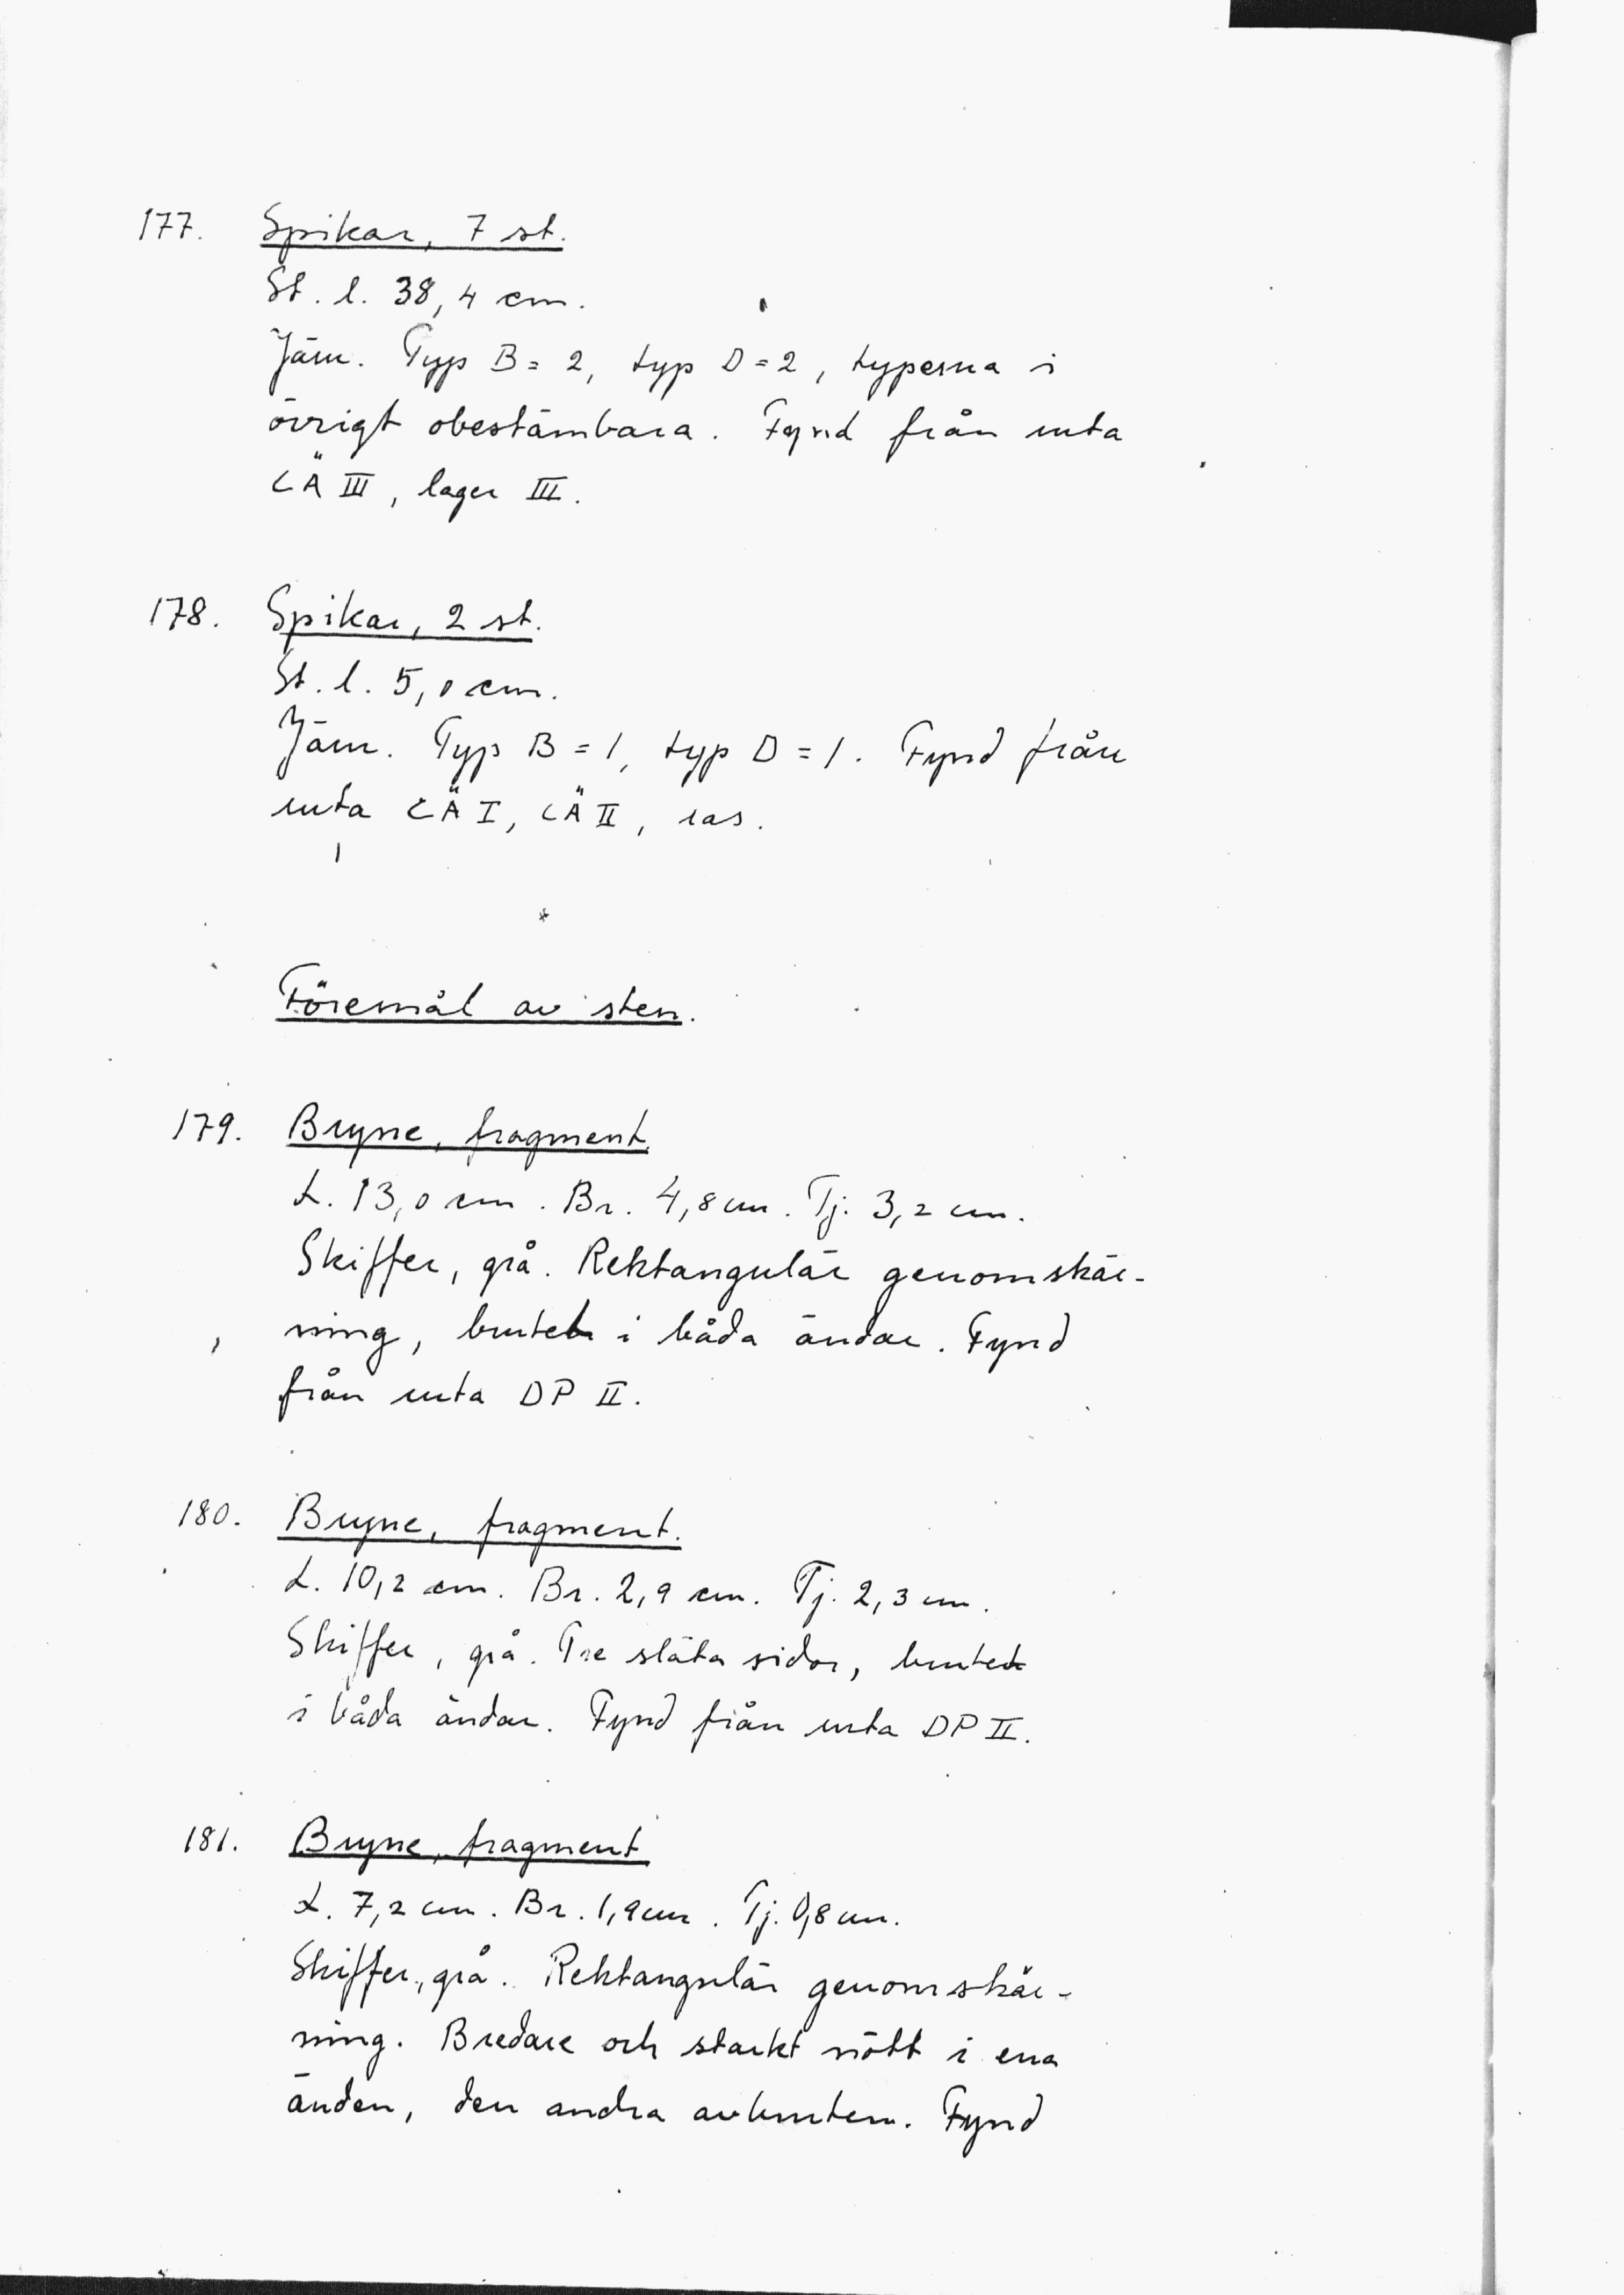 177. Spikar, 7 st.
St. l. 38,4 cm.
Järn. Typ B = 2, typ D = 2, typerna i
övrigt obestämbara. Fynd från ruta
CÄ III, lager III.
178. Spikar, 2 st.
St. l. 5,0 cm.
Järn. Typ B = 1, typ D = 1. Fynd från
ruta CÄ I, CÄ II, ras.
Föremål av sten.
179. Bryne, fragment.
L. 13,0 cm. Br. 4,8 cm. Tj. 3,2 cm.
Skiffer, grå. Rektangulär genomskär-
ning, brutet i båda ändar. Fynd
från ruta DP II.
180. Bryne, fragment.
L. 10,2 cm. Br. 2,9 cm. Tj. 2,3 cm.
Skiffer, grå. Tre släta sidor, brutet
i båda ändar. Fynd från ruta DP II.
181. Bryne, fragment
L. 7,2 cm. Br. 1,9 cm. Tj. 0,8 cm.
Skiffer, grå. Rektangulär genomskär-
ning. Bredare och starkt nött i ena
änden, den andra avbruten. Fynd